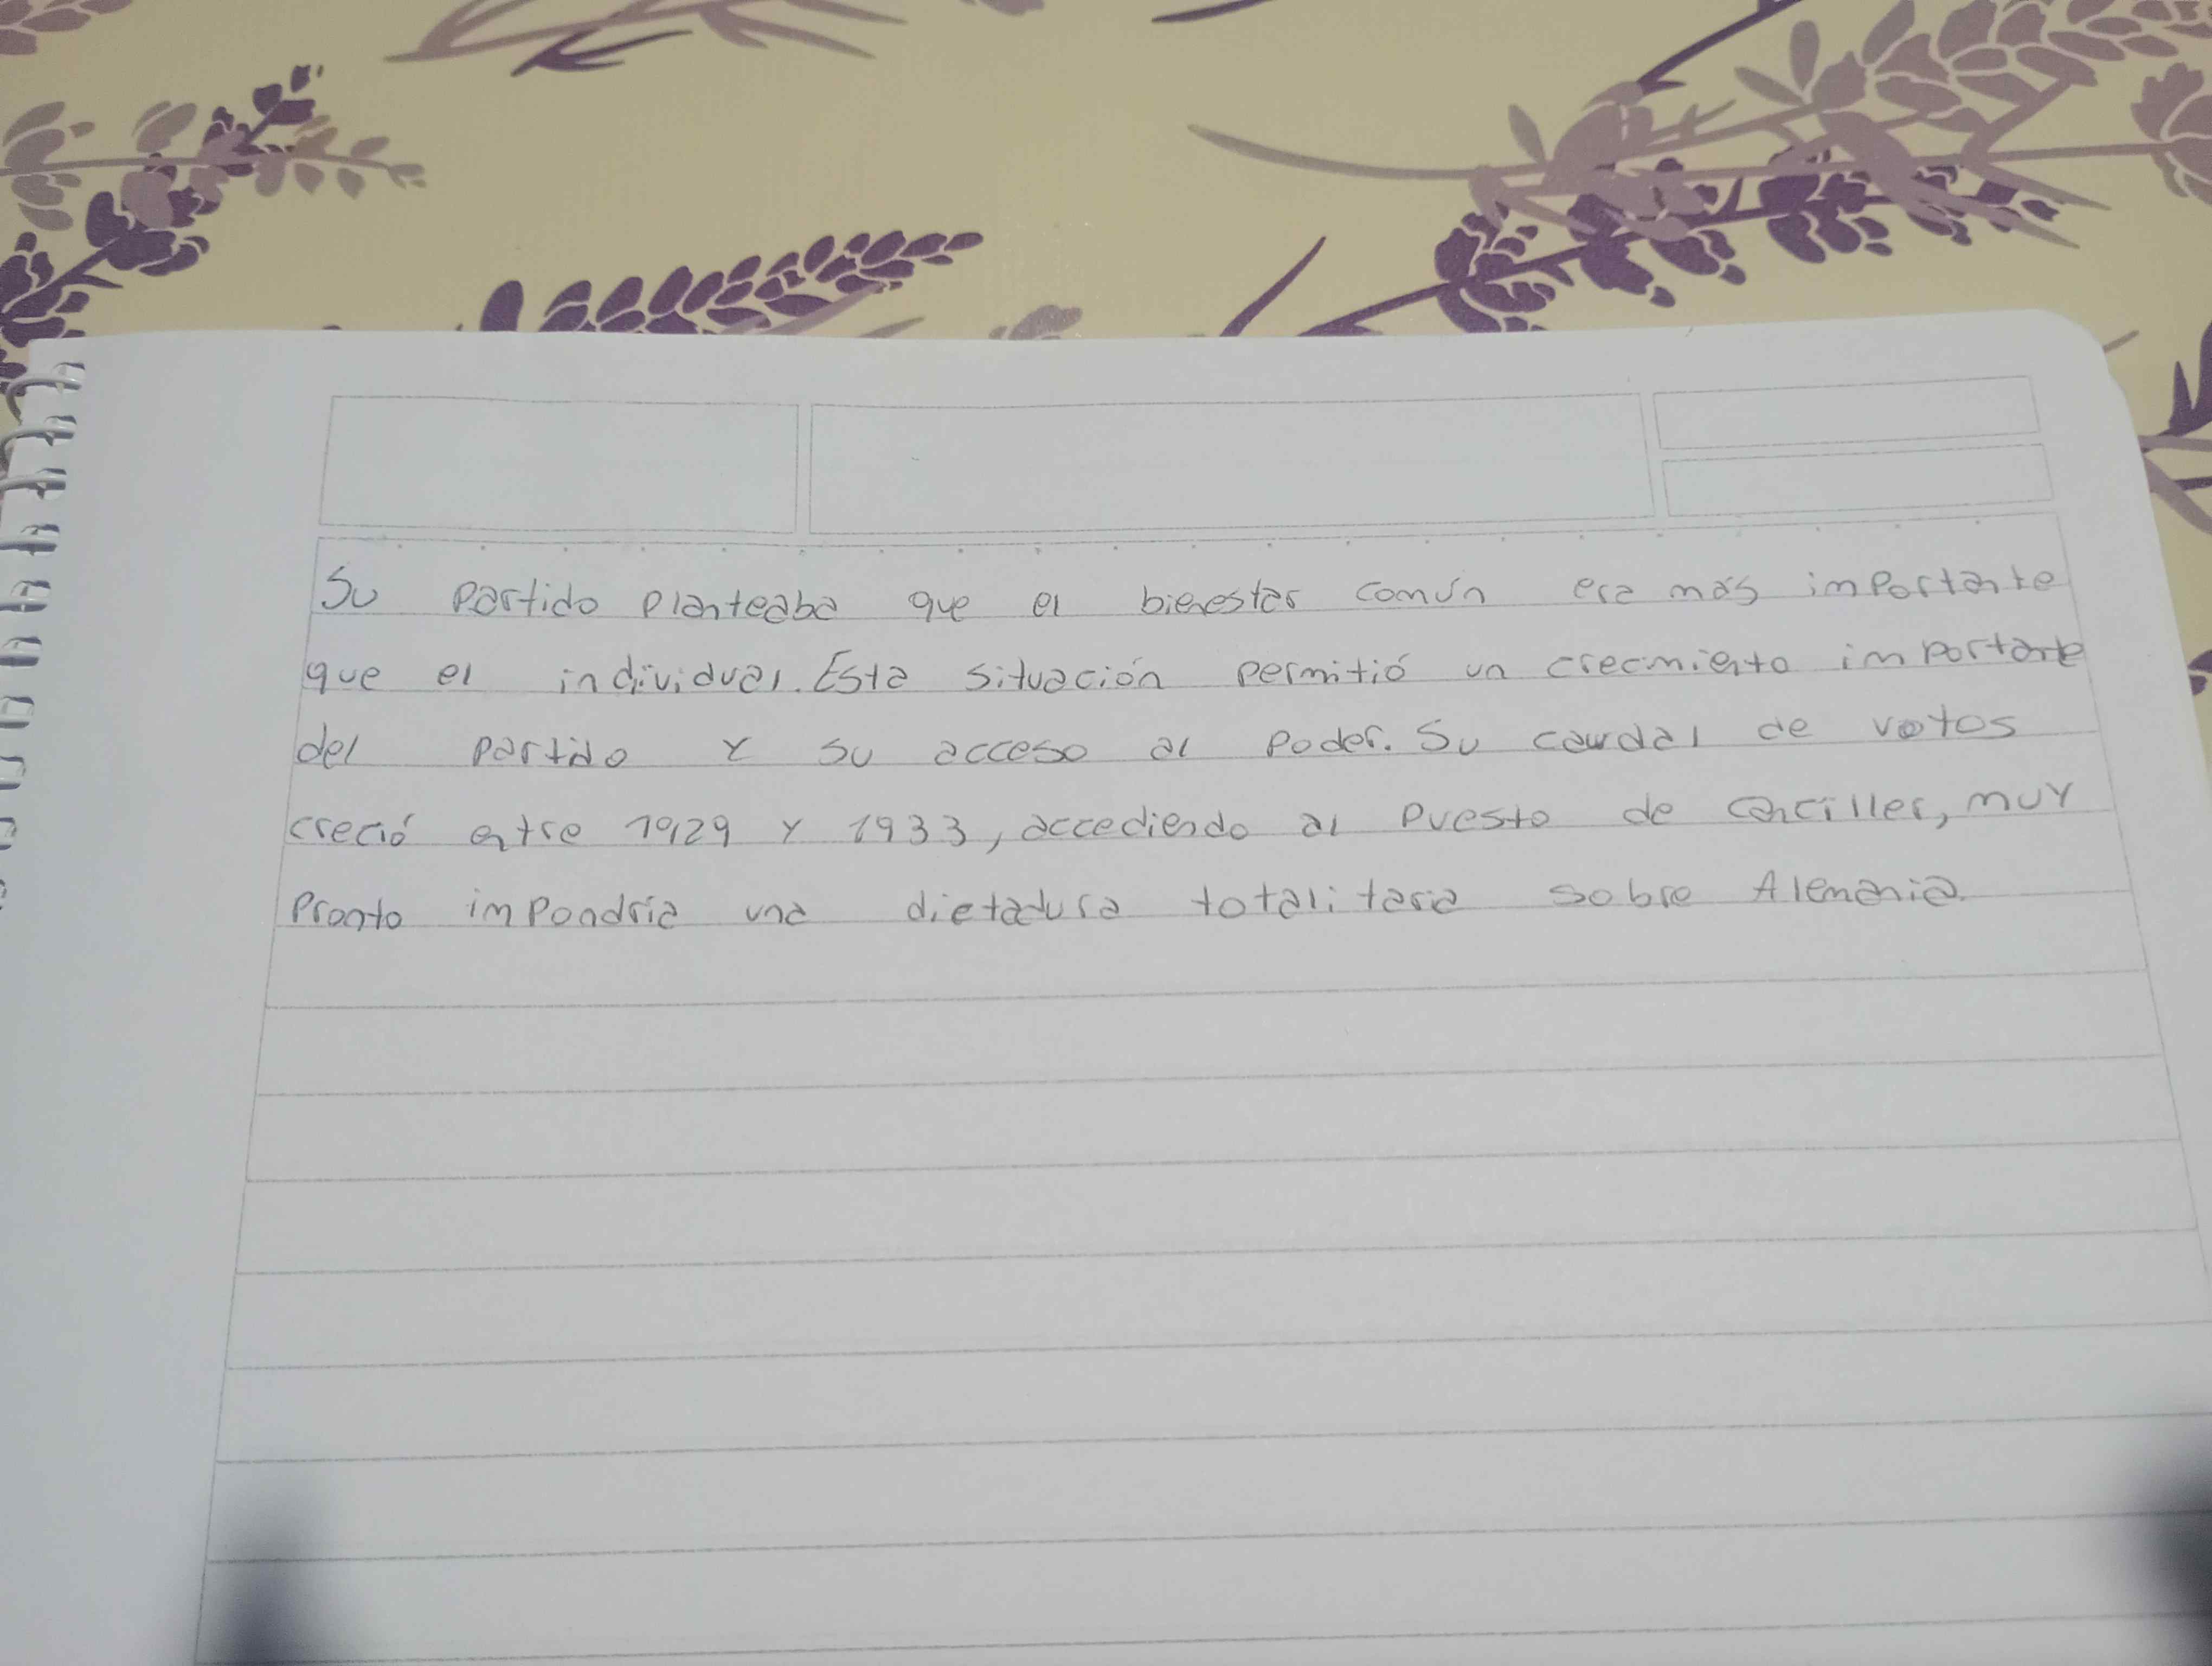 Su partido planteaba que el bienestar común era más importante
que el individual. Esta situación permitió un crecimiento importante
del partido y su acceso al poder. Su caudal de votos
creció entre 1929 y 1933, accediendo al puesto de canciller, muy
pronto impondría una dictadura totalitaria sobre Alemania.